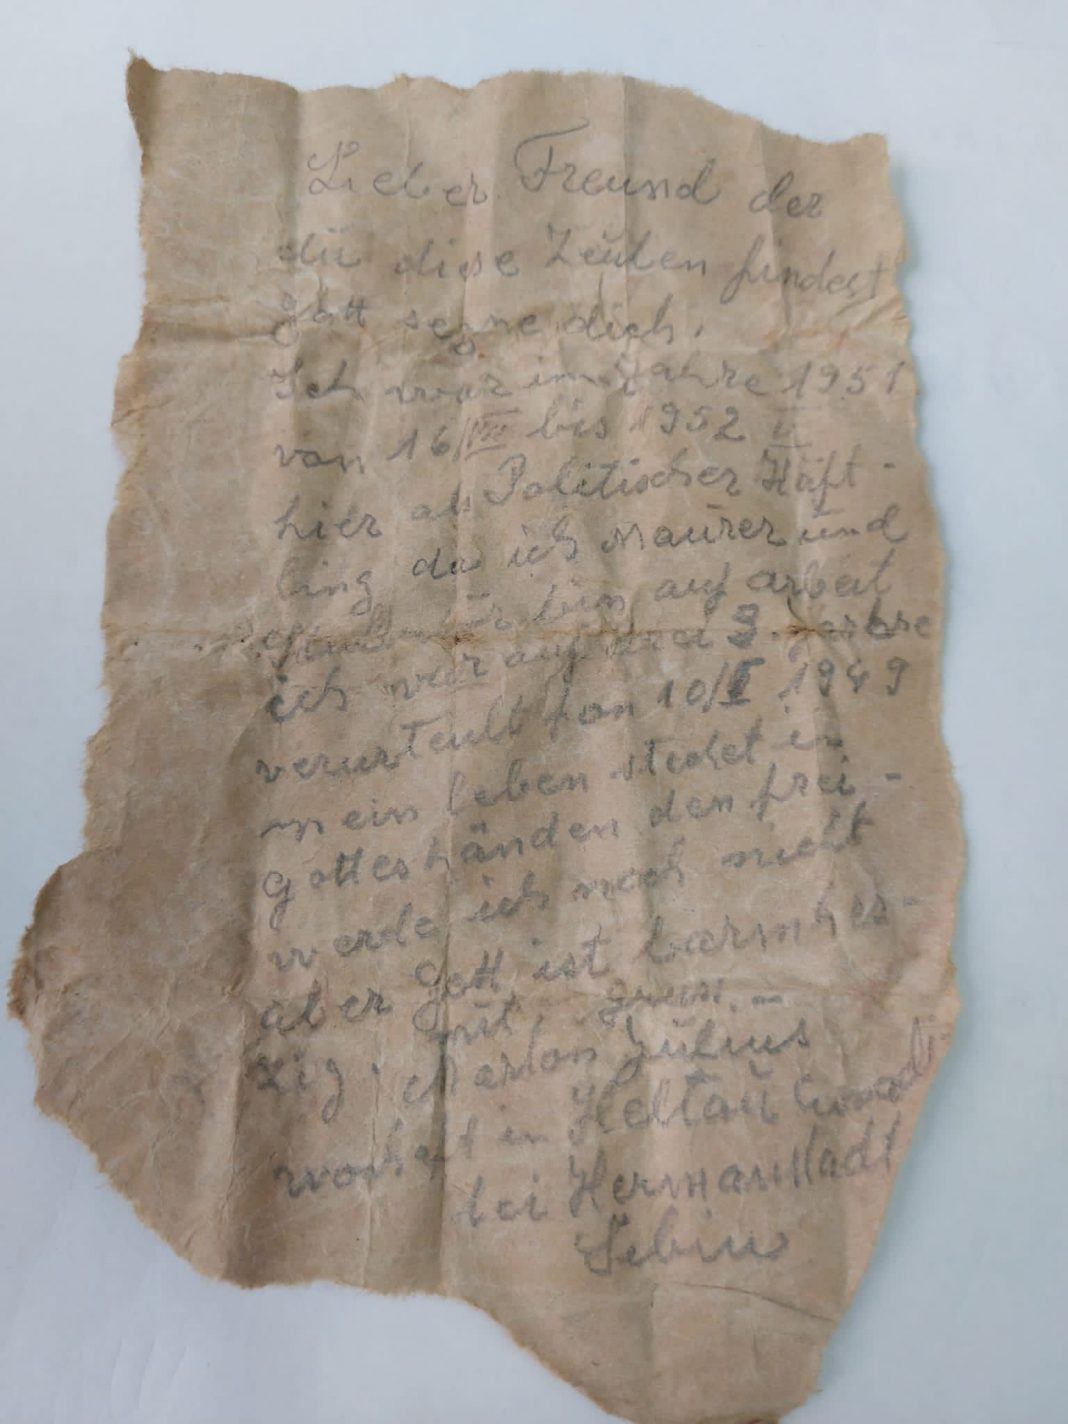 Lieber Freund der
dü diese Zeulen findest
Gott segne dich.
Ich war im Jahre 1951
von 16/VIII bis 1952
hier als Politischer Häft-
ling da ich Maurer und
bin auf arbeit
ich war auf drei 3. Jahre
verurteult fon 10/I 1949
mein leben stehet in
gottes händen den frei-
werde ich noch nicht
aber Gott ist barmher-
zig. mit gruss.-
Marton Julius
wonhaft in Heltau
bei Hermanstadt
Sebiu